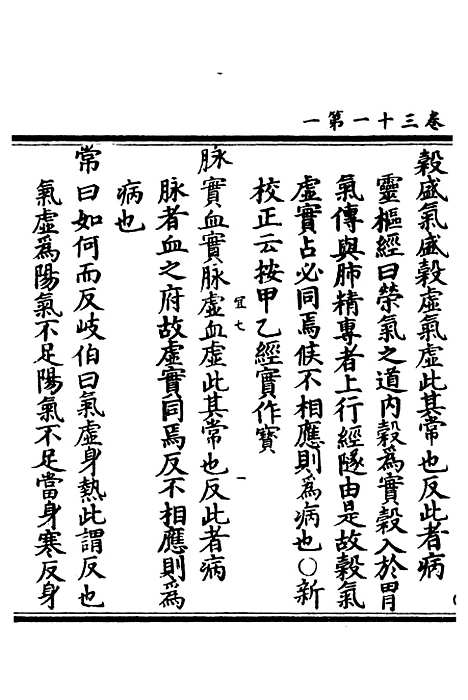 卷三十一第一
穀盛氣盛穀虛氣虛此其常也反此者病
靈樞經曰榮氣之道內穀為實穀入於胃
氣傳與肺精專者上行經隧由是故穀氣
虛實占必同焉候不相應則為病也○新
校正云按甲乙經實作寳
脉實血實脉虛血虛此其常也反此者病
脉者血之府故虛實同焉反不相應則為
病也
常曰如何而反岐伯曰氣虛身熱此謂反也
氣虛為陽氣不足陽氣不足當身寒反身
宜七
一